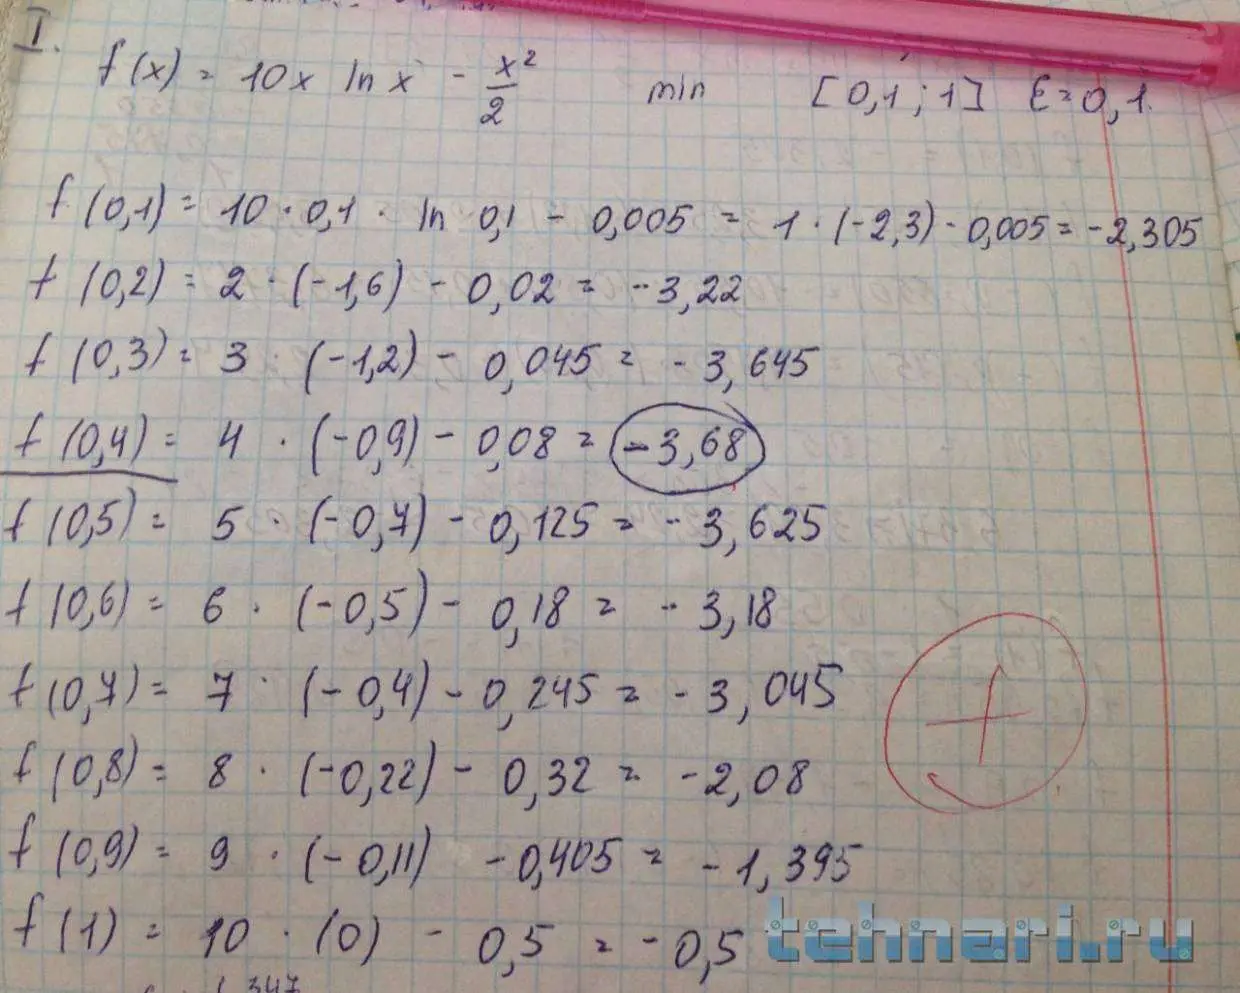 I.
f(x) = 10x ln x - x²/2 min [0,1 ; 1] ε=0,1.
f(0,1) = 10 · 0,1 · ln 0,1 - 0,005 = 1 · (-2,3) - 0,005 = -2,305
f(0,2) = 2 · (-1,6) - 0,02 = -3,22
f(0,3) = 3 · (-1,2) - 0,045 = -3,645
f(0,4) = 4 · (-0,9) - 0,08 = -3,68
f(0,5) = 5 · (-0,7) - 0,125 = -3,625
f(0,6) = 6 · (-0,5) - 0,18 = -3,18
f(0,7) = 7 · (-0,4) - 0,245 = -3,045
f(0,8) = 8 · (-0,22) - 0,32 = -2,08
f(0,9) = 9 · (-0,11) - 0,405 = -1,395
f(1) = 10 · (0) - 0,5 = -0,5
+
tehnari.ru